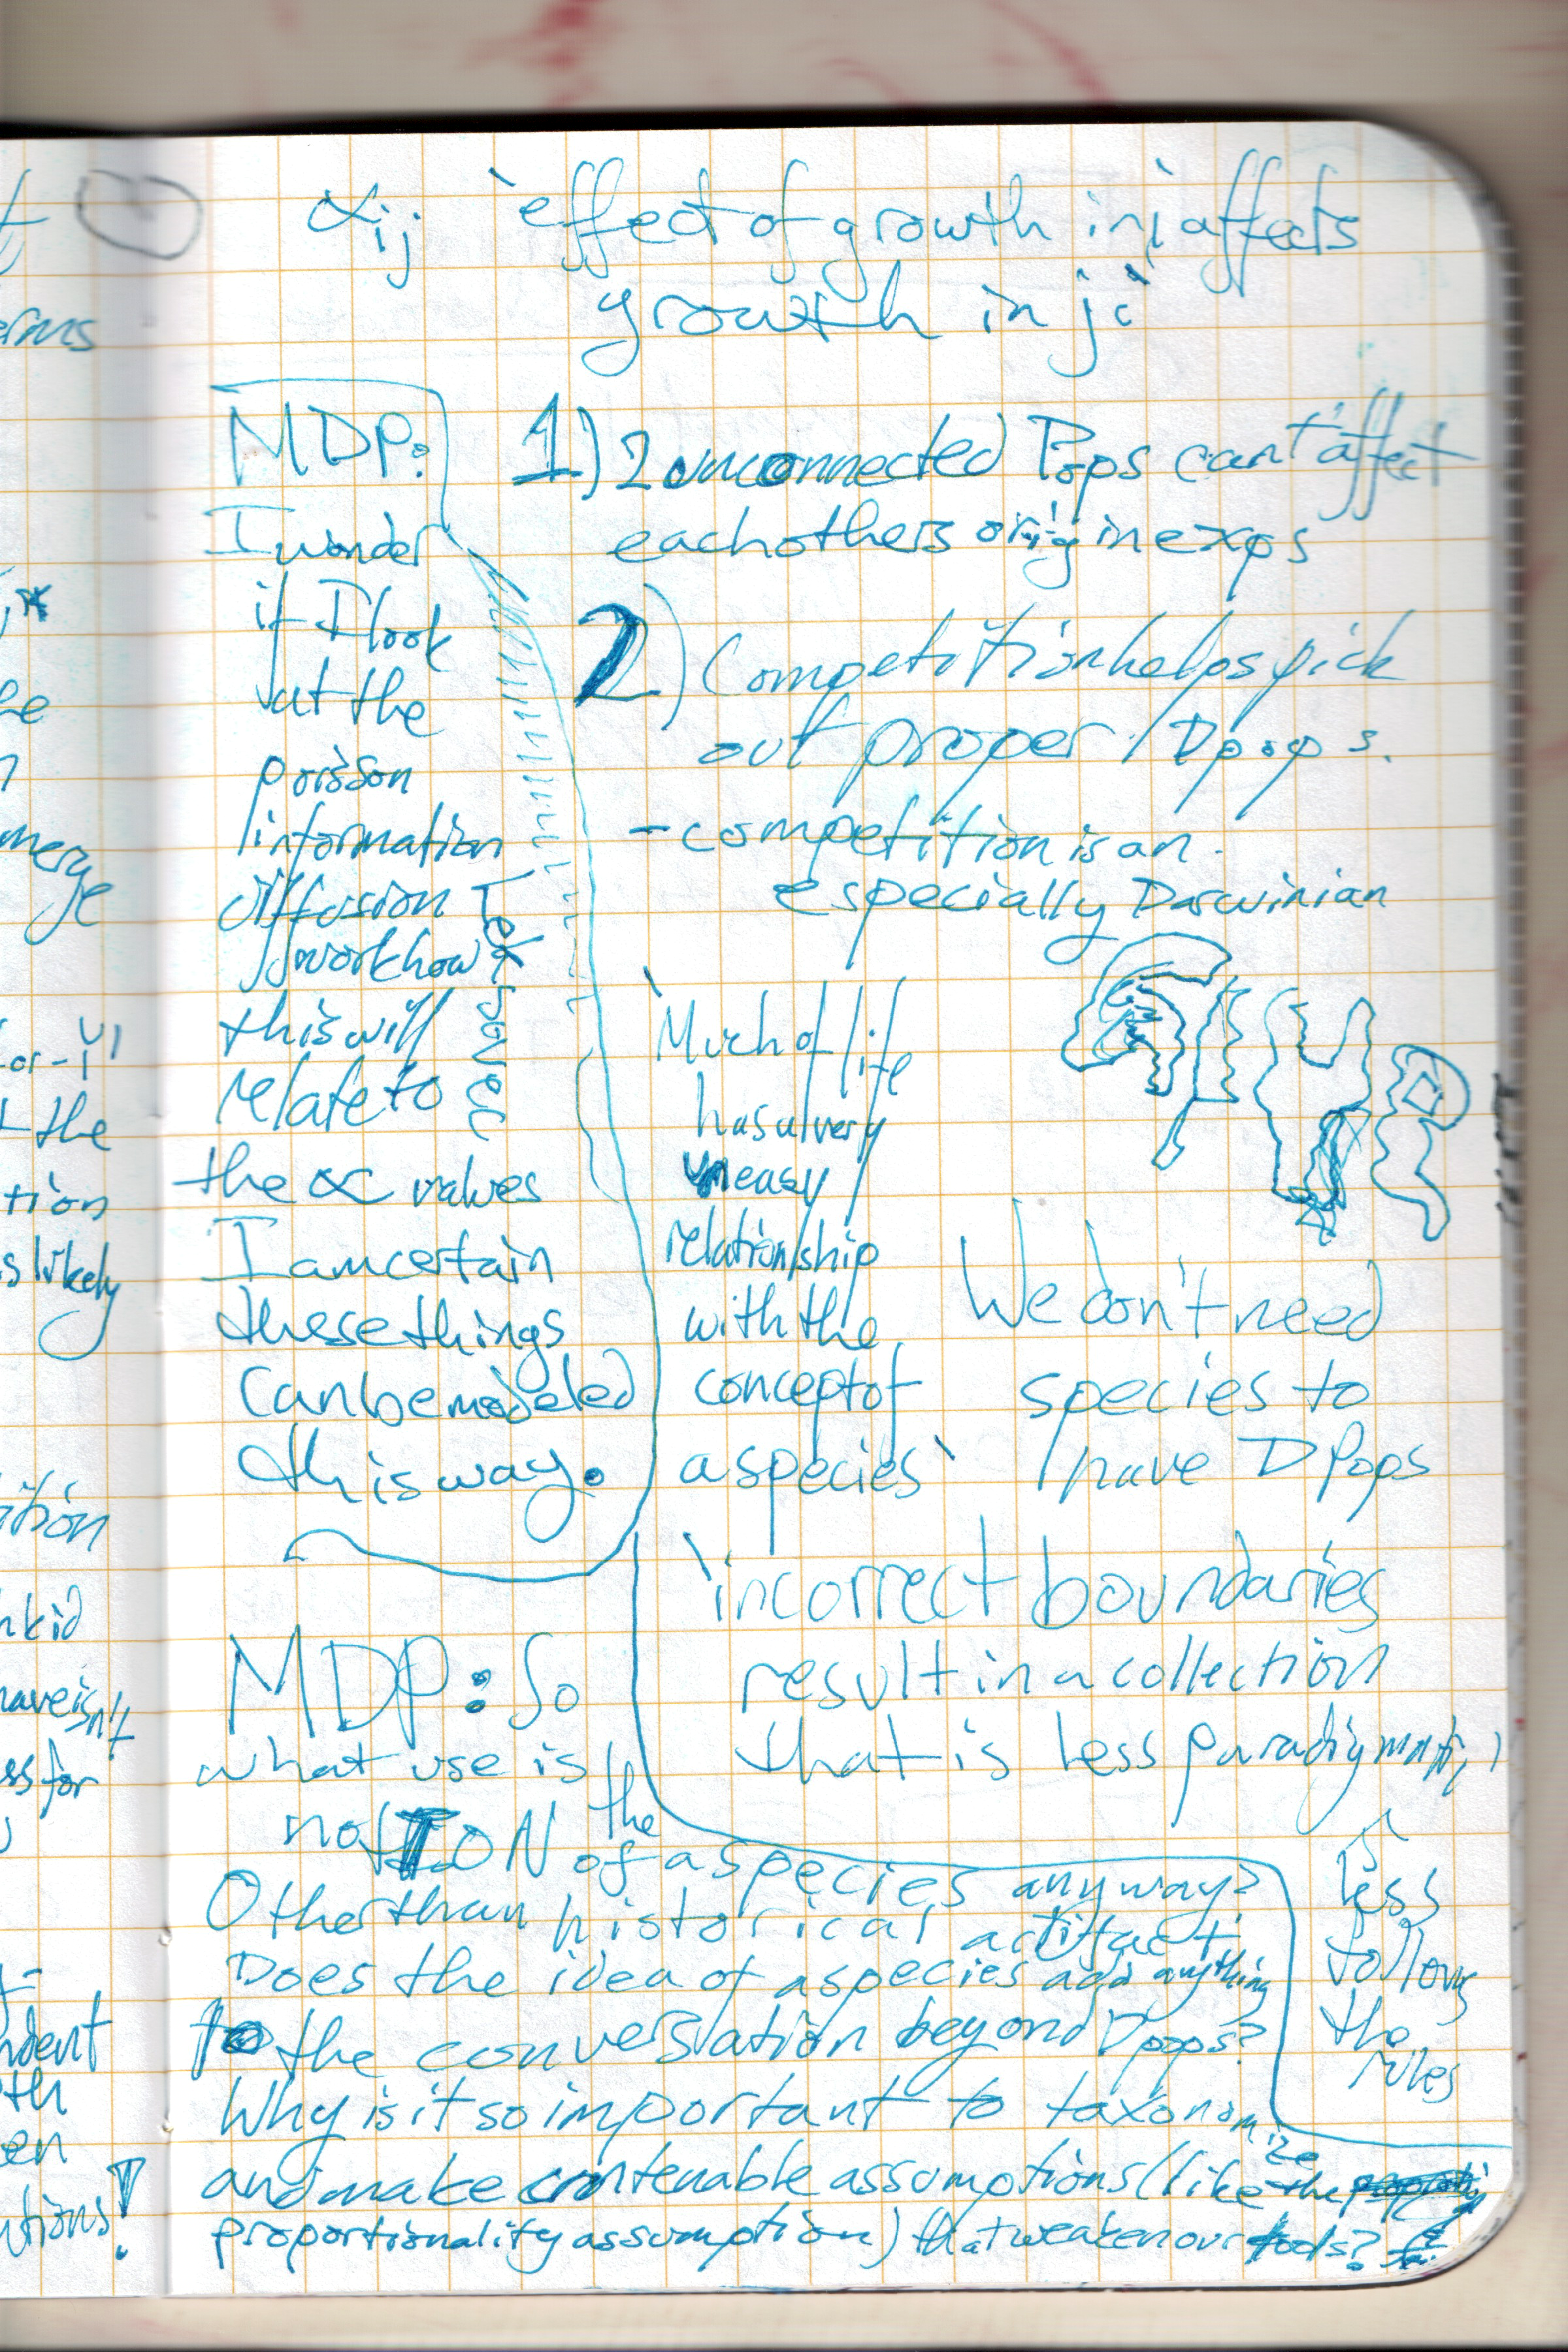 αij 'effect of growth in i affects
growth in j'
MDP:
I wonder
if I look
at the
poisson
information
diffusion
work how
this will
relate to
the ∝ values
I am certain
these things
can be modeled
this way.
1) 2 unconnected Pops can't affect
each others origin exps
2) Competition helps pick
out proper Dpops.
- competition is an
especially Darwinian
'Much of life
has a very
uneasy
relationship
with the
concept of
a species'
We don't need
species to
have DPops
'incorrect boundaries
result in a collection
that is less paradigmatic'
less
follow
the
rules
MDP: So
what use is the
notION of a species anyway?
Other than historical artifact.
Does the idea of a species add anything
to the conversation beyond Dpops?
Why is it so important to taxonomize
and make assumptions (like the
proportionality assumption) that weaken our tools?
erms
merge
the
tion
s likely